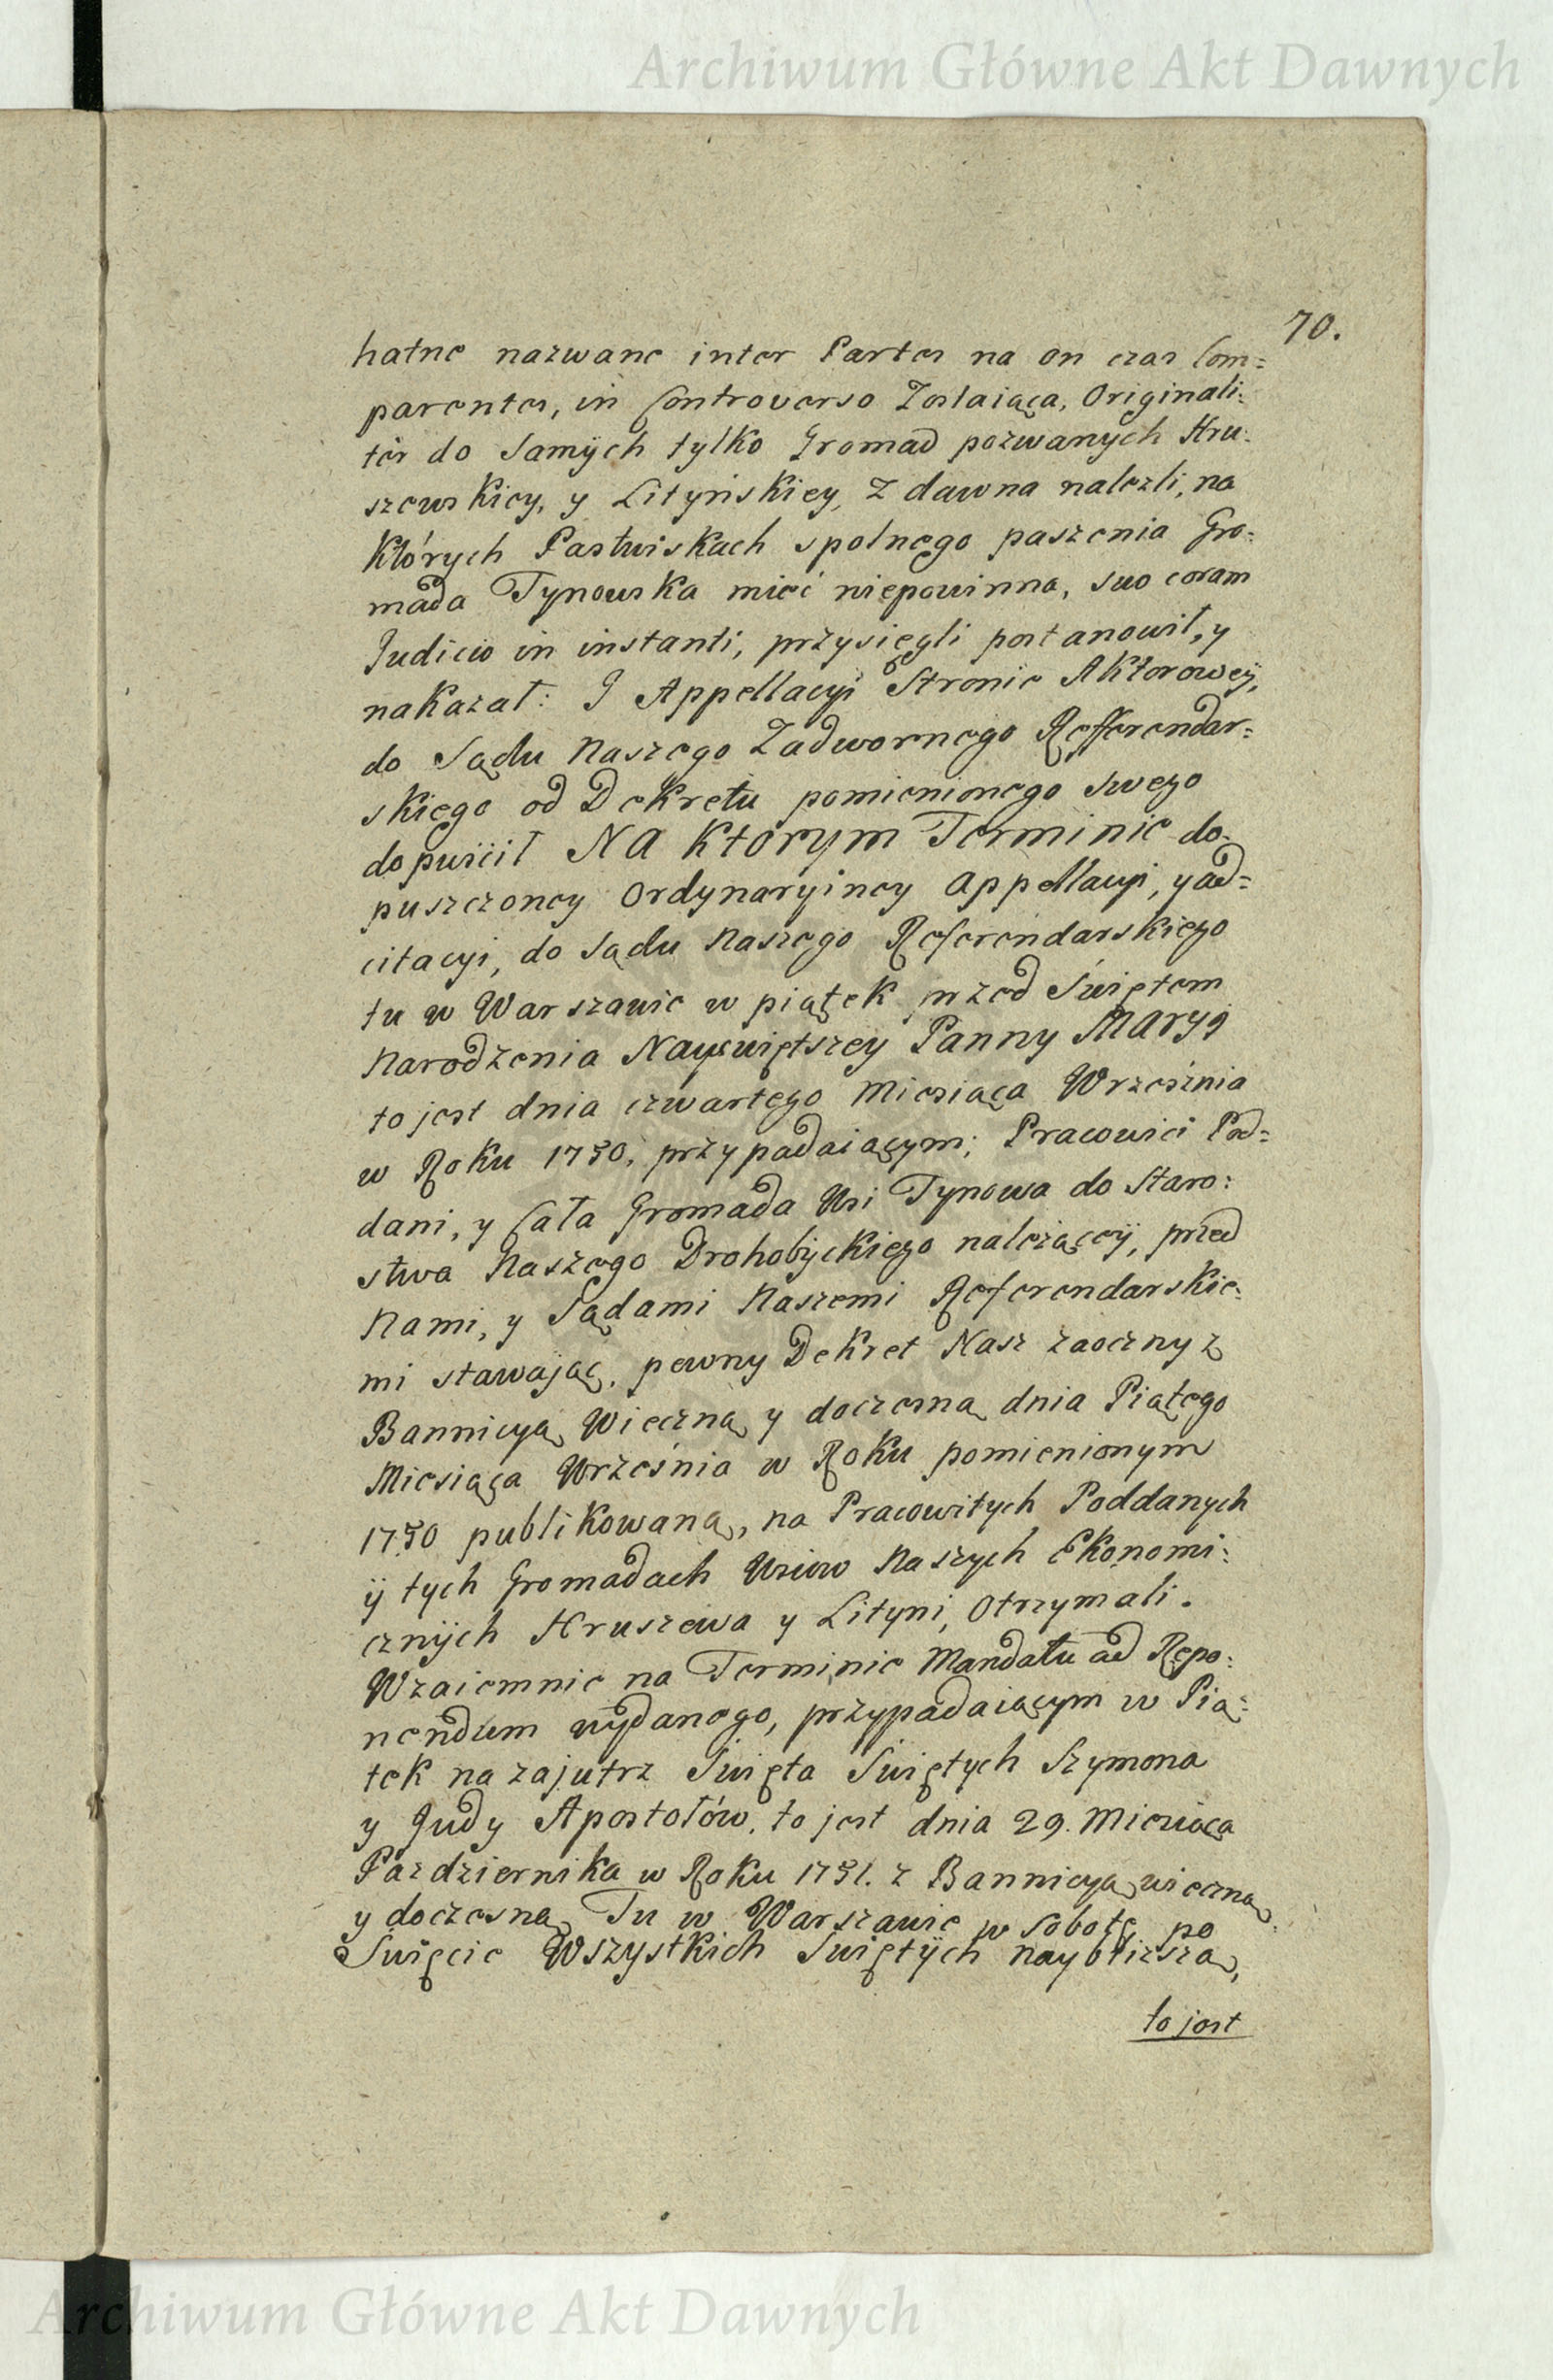 Archiwum Główne Akt Dawnych
70.
hatne nazwane inter Partes na on czas Com=
parentes, in Controverso Zostaiąca, Originali=
tér do Samych tylko Gromad pozwanych Hru=
szewskiey, y Lityńskiey, z dawna należli, na
Których Pastwiskach spolnego paszenia Gro=
mada Tynowska mieć niepowinna, suo coram
Judicio in instanti, przysięgli postanowił, y
nakazał: I Appellacyi Stronie Aktorowey,
do Sądu Naszego Zadwornego Refferendar=
skiego od Dekretu pomienionego swego
dopuścił NA Którym Terminie do=
puszczoney Ordynaryiney Appellacyi, y ad=
citacyi, do Sądu Naszego Referendarskiego
tu w Warszawie w piątek przed Świętem
Narodzenia Nayświętszey Panny MARYI
to jest dnia czwartego Miesiąca Września
w Roku 1750, przypadaiącym; Pracowici Pod=
dani, y Cała Gromada Wsi Tynowa do Staro=
stwa Naszego Drohobyckiego należącey, przed
Nami, y Sądami Naszemi Referendarskie=
mi stawając, pewny Dekret Nasz zaoczny z
Bannicyą Wieczną y doczesną dnia Piątego
Miesiąca Września w Roku pomienionym
1750 publikowaną, na Pracowitych Poddanych
ÿ tych Gromadach Wsiow Naszych Ekonomi=
cznych Hruszewa y Lityni, Otrzymali.
Wzaiemnie na Terminie Mandatu ad Repo=
nendum wydanego, przypadaiącym w Pią=
tek nazajutrz Święta Świętych Szymona
y Judy Apostołów, to jest dnia 29. Miesiąca
Pazdziernika w Roku 1751. z Bannicyą wieczną
y doczesną Tu w Warszawie w Sobotę po
Święcie Wszystkich Świętych naybliższą,
to jest
Archiwum Główne Akt Dawnych